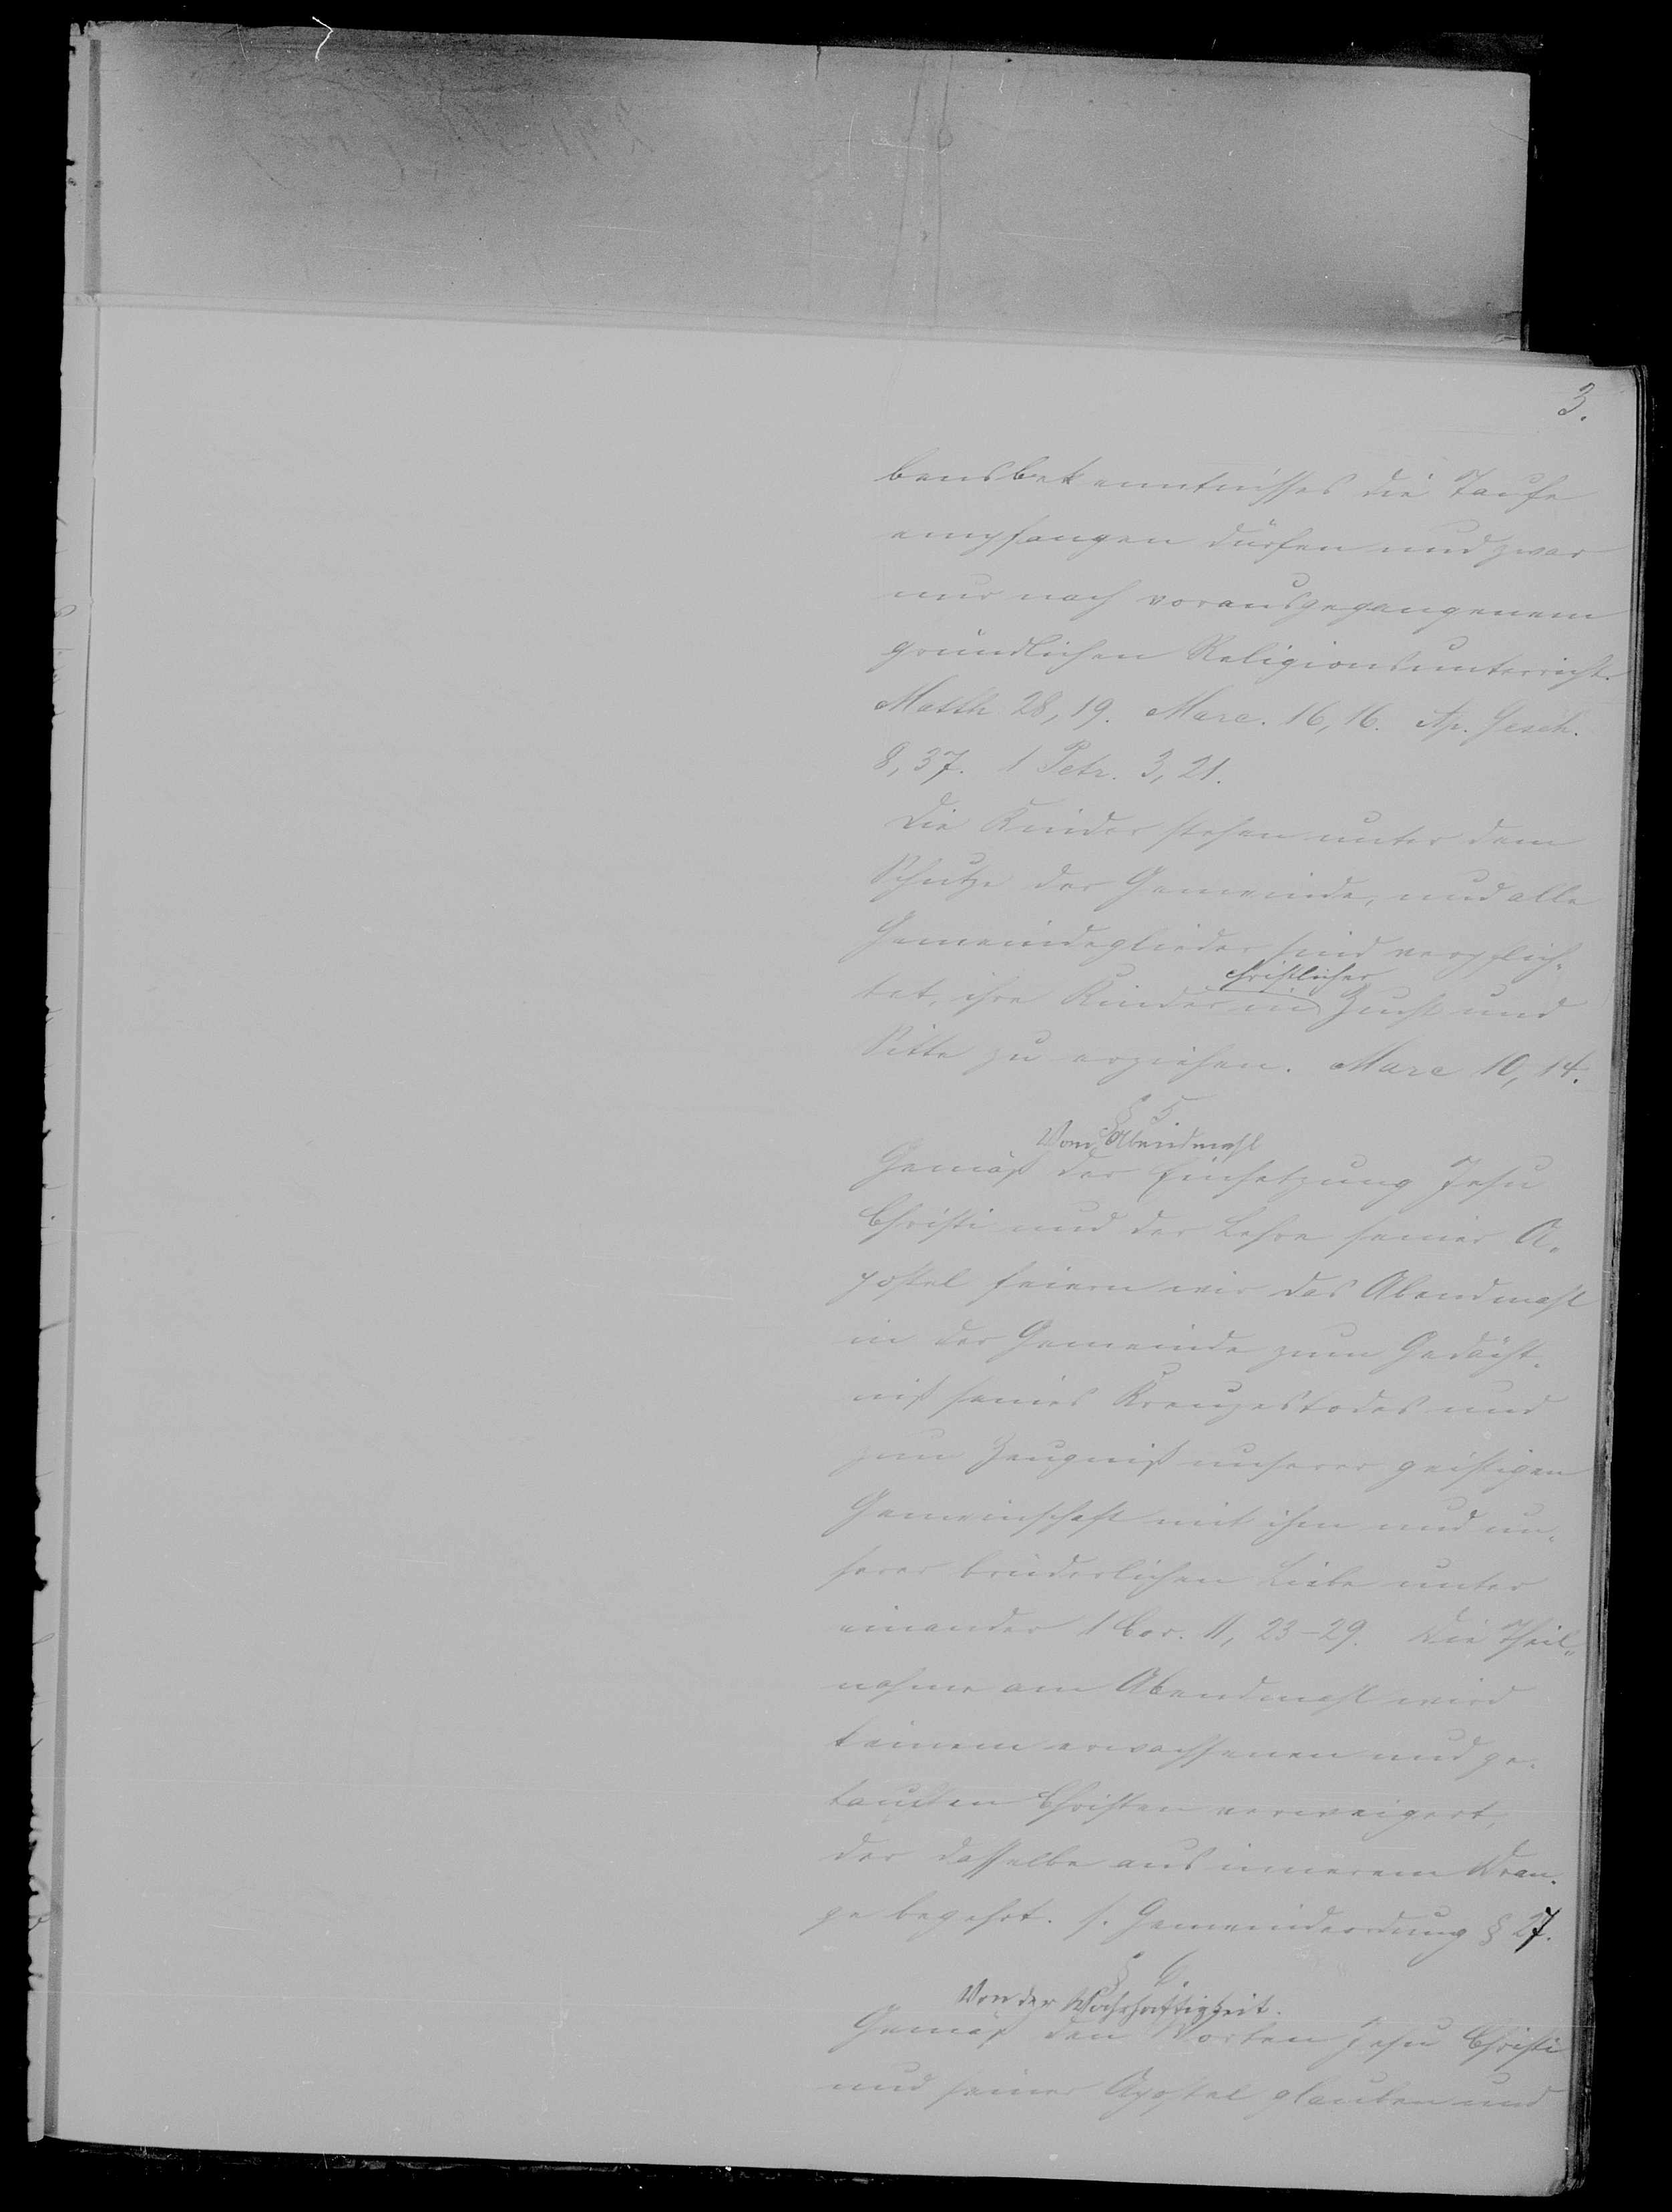 3.
bensbekenntnisses die Taufe
empfangen dürfen und zwar
nur nach vorausgegangenem
gründlichen Religionsunterricht.
Matth 28, 19. Marc. 16, 16. Ap. Gesch.
8, 37. 1 Petr. 3, 21.
Die Kinder stehen unter dem
Schutze der Gemeinde, und alle
Gemeindeglieder sind verpflich-
christlicher
tet, ihre Kinder in Zucht und
Sitte zu erziehen. Marc 10, 14.
§ 5
Vom Abendmahl
Gemäß der Einsetzung Jesu
Christi und der Lehre seiner A-
postel feiern wir das Abendmahl
in der Gemeinde zum Gedächt-
niß seines Kreuzestodes und
zum Zeugniß unserer geistigen
Gemeinschaft mit ihm und un-
serer brüderlichen Liebe unter
einander 1 Cor. 11, 23-29. Die Theil-
nahme am Abendmahl wird
keinem erwachsenen und ge-
tauften Christen verweigert,
der dasselbe aus innerem Dran-
ge begehrt. s. Gemeindeordnung § 27.
§ 6
Von der Wahrhaftigkeit.
Gemäß den Worten Jesu Christi
und seiner Apostel glauben und